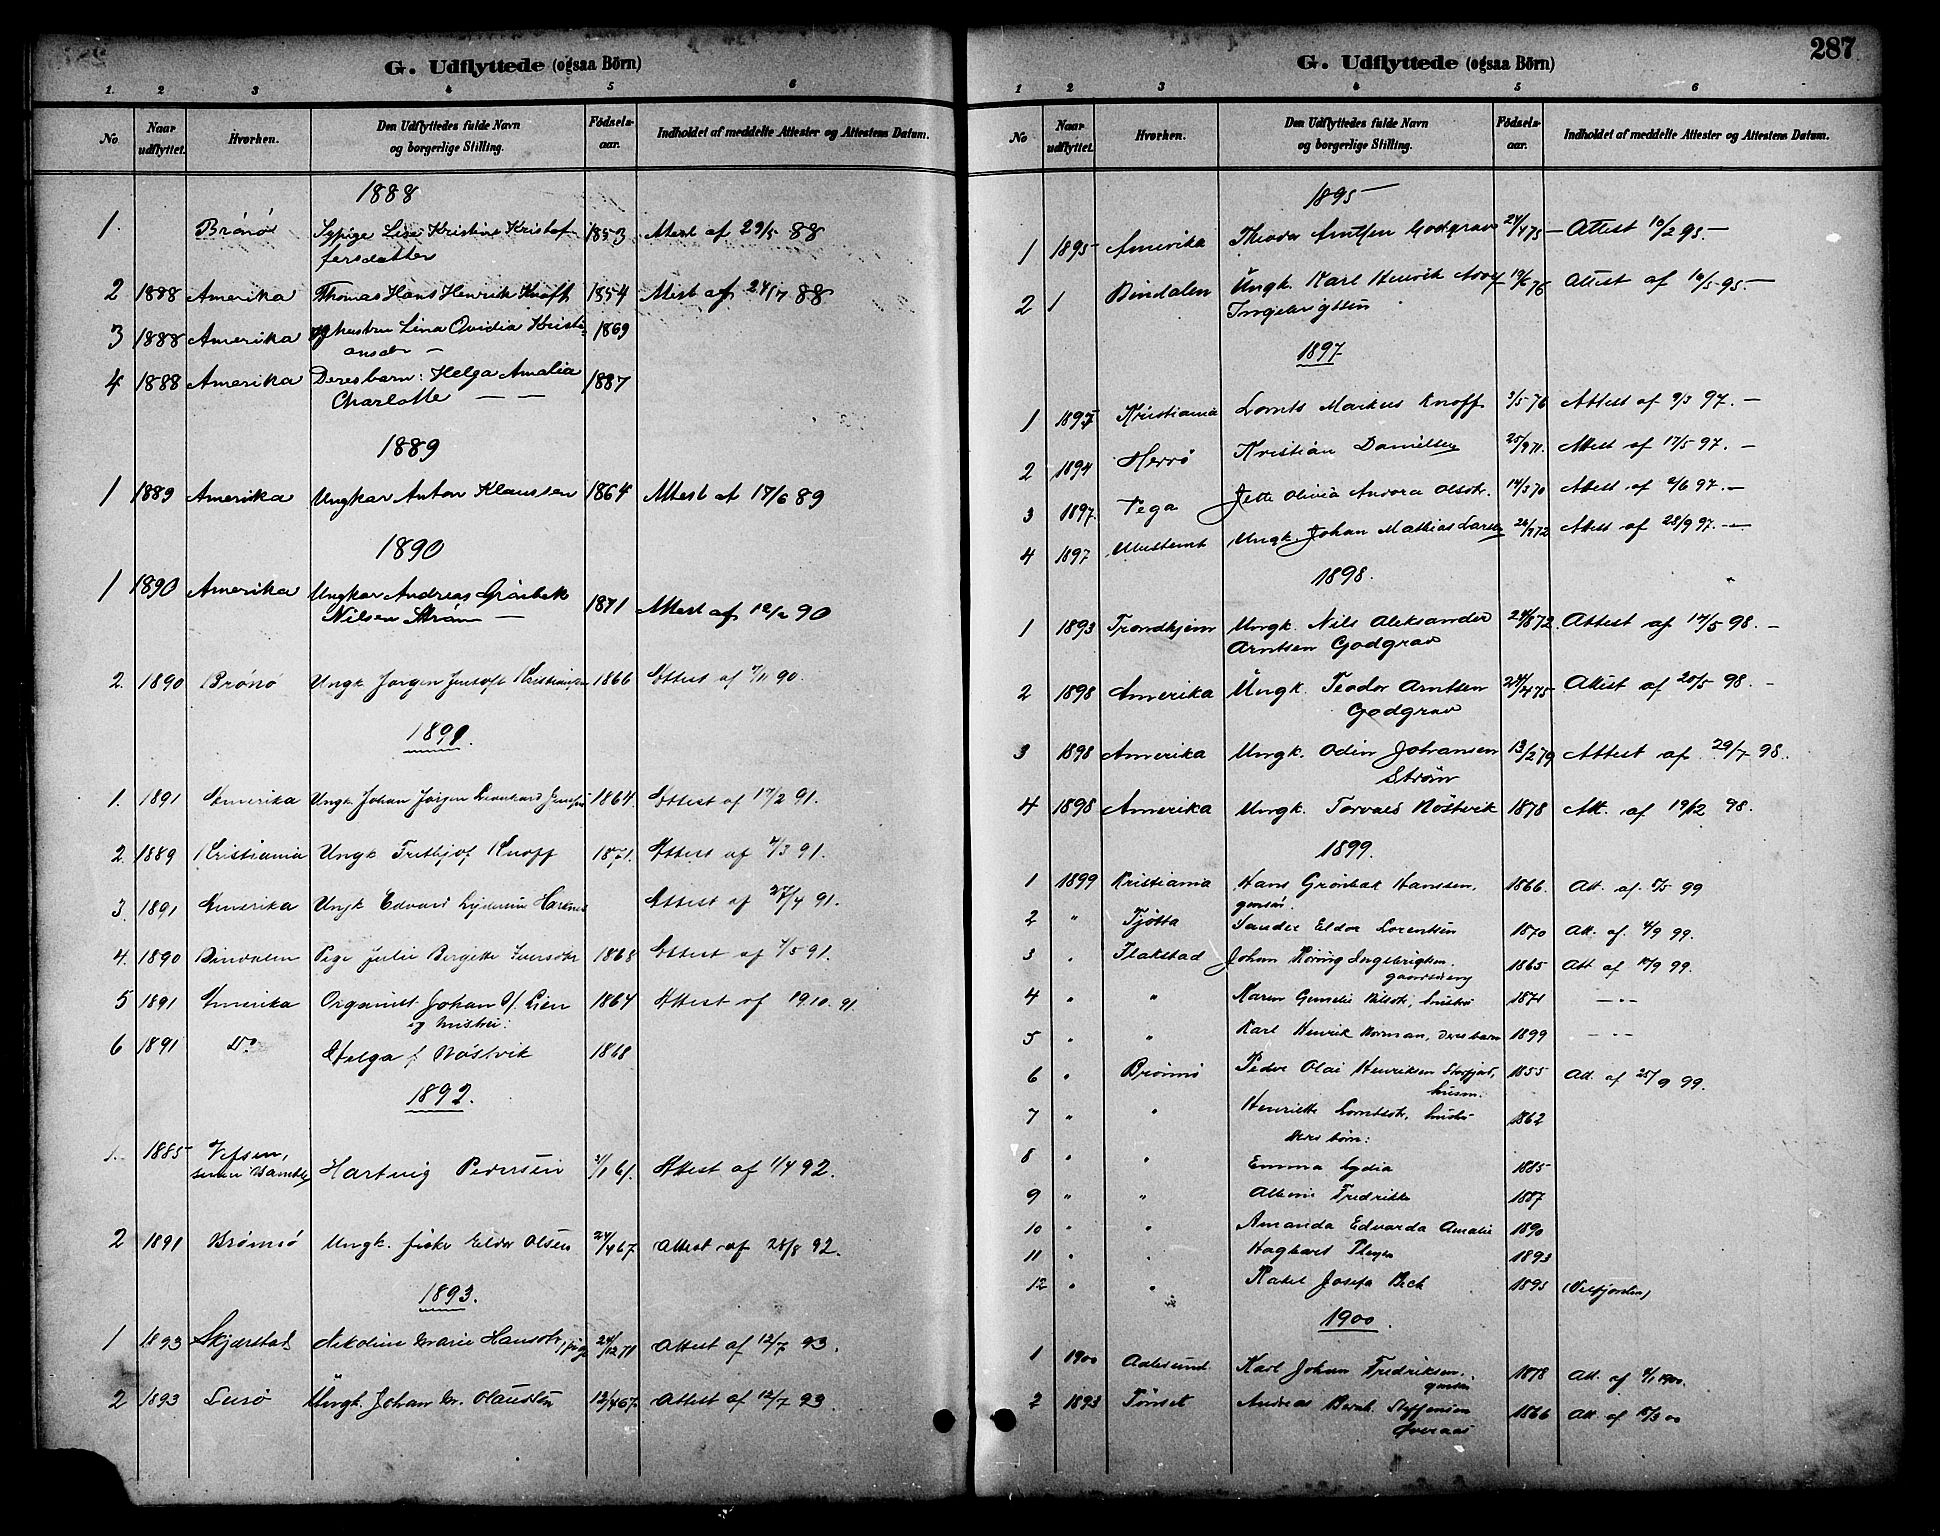 G. Udflyttede (ogsaa Börn)
1. 2 3 4 5 6
No Naar udflyttet. Hvorhen. Den Udflyttedes fulde Navn og borgerlige Stilling. Födsels-aar. Indholdet af meddelte Attester og Attestens Datum.
1888
1. Brönö Lise Kristine Kristof- 1853 Attest af 29/5 88
fersdatter
2 1888 Amerika Thomas Hans Henrik Knoff 1854 Attest af 88
3 1888 Amerika og hustru Lina Ovidia Kristi- 1869
ansdr —
4 1888 Amerika Deres barn: Helga Amalia 1887
Charlotte — —
1889
1 1889 Amerika Ungkar Anton Klaussen 1864 Attest af 17/6 89
1890
1 1890 Amerika Ungkar Andreas Grönbek
Nilsen Ström — 1871 Attest af 90
2. 1890 Brönö Ungk. Jørgen Kristiansen 1866 Attest af 7/11 90.
1891.
1. 1891 Amerika Ungk Johan Jörgen Leonhard 1864. Attest af 17/2 91.
2. 1889 Kristiania Ungk Frithjof Knoff 1871. Attest af 91.
3. 1891 Amerika Ungk Edvard Attest af 27/4 91.
4. 1890 Bindalen Pige Julie Bergitte Iversdtr 1868 Attest af 91.
5 1891 Amerika Organist Johan Lien 1864 Attest af 19.10.91.
og hustru:
6 1891 Do Helga f. Nöstvik 1868
1892.
1. 1885 Vefsen, Hartvig Pedersen 61. Attest af 1/4 92.
2 1891 Brønnø Ungk. Eldor Olsen 24/4 67. Attest af 28/8 92.
1893.
1 1893 Skjærstad Nikoline Marie Hansdtr, pige 24/12 71 Attest af 12/7 93.
2 1893 Lurö Ungk. Johan M. Olaussen 12/4 67. Attest af 12/7 93.
287
G. Udflyttede (ogsaa Börn)
1 2 3 4 5 6
No Naar udflyttet. Hvorhen. Den Udflyttedes fulde Navn og borgerlige Stilling. Födsels-aar. Indholdet af meddelte Attester og Attestens Datum.
1895
1 1895 Amerika Theodor Arntsen Godgrav 24/4 75 — Attest 10/2 95. —
2 Bindalen Ungk. Karl Henrik 19/6 76 Attest af 10/5 95. —
Ingebrigtsen
1897
1 1897 Kristiania Lornts Markus Knoff 3/5 76 Attest af 9/3 97. —
2 1894 Herrö Kristian Danielsen 25/9 71. Attest af 17/5 97. —
3 1897. Vega Jette Olivia Andora Olsdtr. 14/3 70 Attest af 2/6 97. —
4 1897 Ungk. Johan Mathias Larsen 72 Attest af 28/9 97. —
1898.
1 1893 Trondhjem Ungk. Nils Aleksander 24/8 72. Attest af 14/5 98. —
Arntsen Godgrav
2 1898 Amerika Ungk. Teodor Arntsen 24/4 75 Attest af 20/5 98. —
Godgrav
3 1898 Amerika Ungk. Odin Johansen 13/2 79 Attest af 29/7 98.
Ström
4 1898 Amerika Ungk. Torvald Nöstvik 1878 Att. af 19/12 98.
1899.
1 1899 Kristiania Hans Grönbek Hanssen, 1866. Att. af 99
2 " Tjötta Sander Eldor Lorentsen 1870 Att. af. 4/9 99.
3 " Flakstad Johan Köring Ingebrigtsen. 1865 Att. af 17/9 99.
4 " " Karen Nilsdtr, hustru 1871 — " —
5 " " Karl Henrik Norman, deres barn 1899 — " —
6 " Brönnö Peder Olai Henriksen 1855 Att. af 25/9 99.
husm.
7 " " Henriette Lorntsdtr, hustru 1862
deres börn:
8 " " Emma Lydia 1885
9 " " Albine Fredrikke 1887
10 " Amanda Edvarda Amalie 1890
11 " " Hagbart 1893
12 " " Rakel Josefa Bech 1895 (Velfjorden)
1900.
1 1900 Aalesund Karl Johan Fredriksen, 1878 Att. af 1900.
2 1893 Tönset Andreas Bernh. Steffensen 1866 Att. af 15/3 00
Överaas